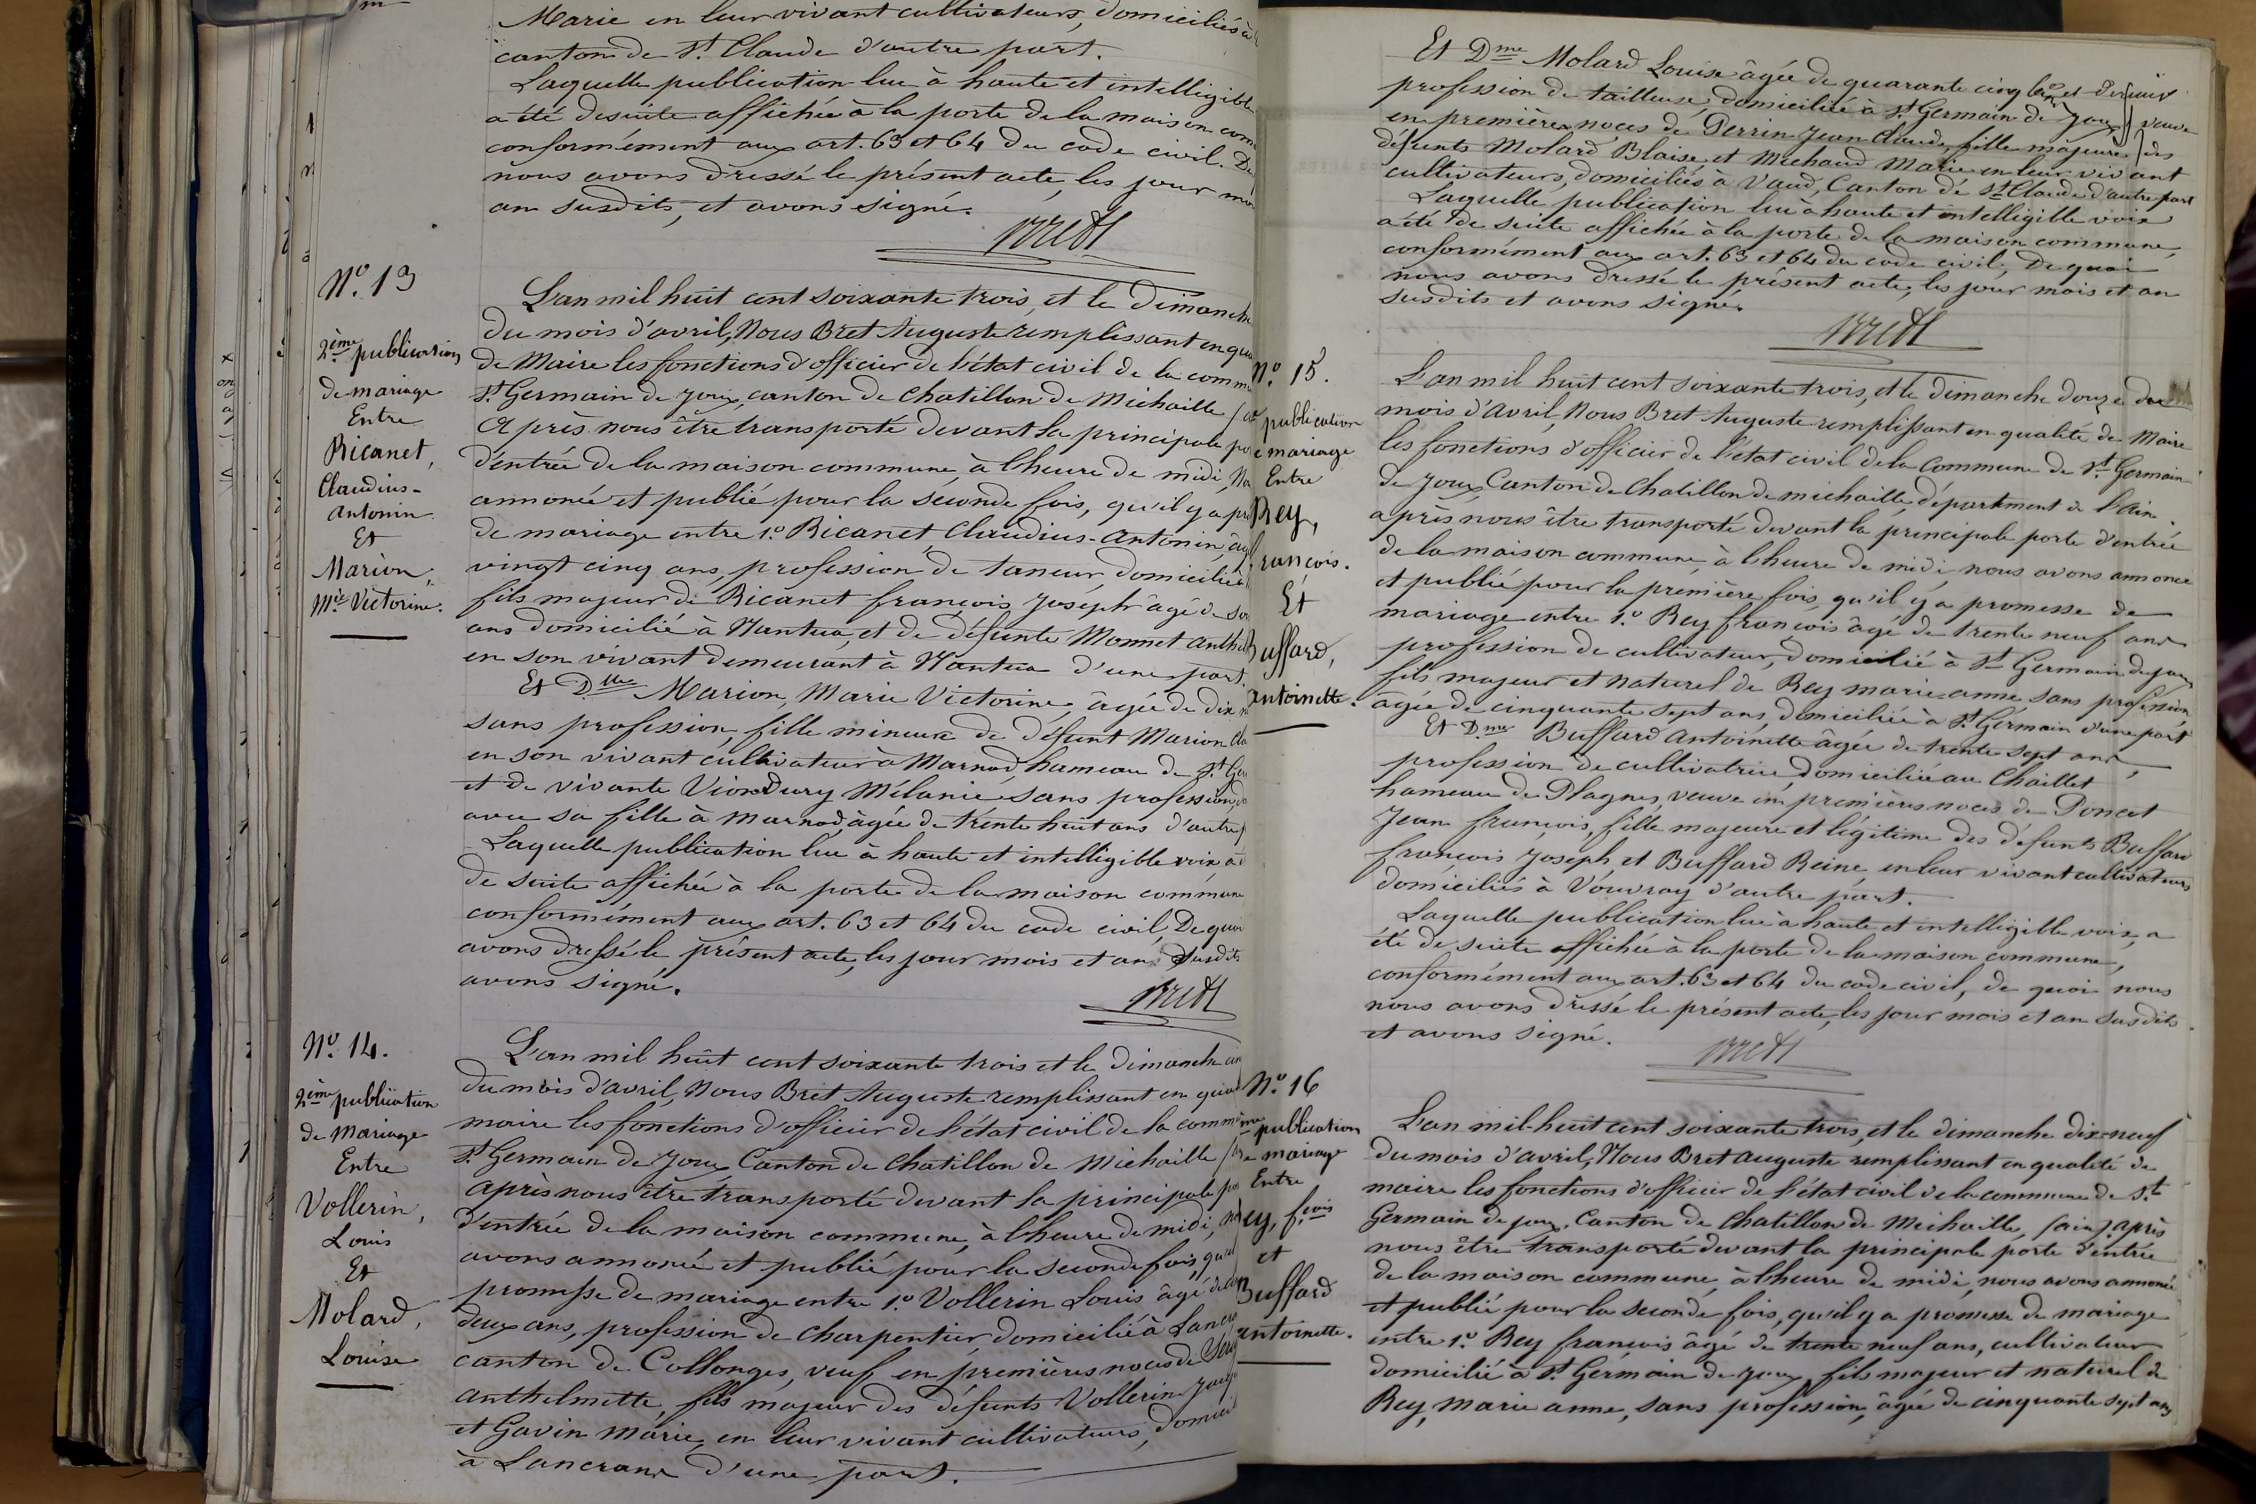 Marie en leur vivant cultivateurs, domiciliés à
canton de St. Claude d'autre part.
Laquelle publication lue à haute et intelligible
a été desuite affichée à la porte de la maison com
conformément aux art. 63 et 64 du code civil. De
nous avons dressé le présent acte, les jour moi
an susdits, et avons signé.
Bret
No. 13
2ème publication
de mariage
Entre
Ricanet,
Claudius-
Antonin
Et
Marion,
Mie Victorine.
L'an mil huit cent soixante trois, et le dimanche
du mois d'avril, Nous Bret Auguste remplissant en qua
de Maire les fonctions d'officier de l'état civil de la comm
St. Germain de Joux, canton de Chatillon de Michaille
Après nous être transporté devant la principale po
d'entrée de la maison commune, à l'heure de midi, No
annoncé et publié pour la séconde fois, qu'il y a pro
de mariage entre 1.o Ricanet Claudius-Antonin âg
vingt cinq ans, profession de taneur, domicilié
fils majeur de Ricanet françois Joséph âgé de soi
ans domicilié à Nantua, et de défunte Monnet Anthel
en son vivant demeurant à Nantua d'une part.
Et Dlle Marion, Marie Victorine, âgée de dix
sans profession, fille mineure de défunt Marion Cla
en son vivant cultivateur à Marnod, hameau de St. Ger
et de vivante Viondury Mélanie sans profession
avec sa fille à Marnod, âgée de trente huit ans d'autre p
Laquelle publication lue à haute et intelligible voix a é
de suite affichée à la porte de la maison commune
conformément aux art. 63 et 64 du code civil, De quoi
avons dressé le présent acte, les jour mois et an susdits
avons signé.
Bret
No. 14.
2ème publication
de mariage
Entre
Vollerin,
Louis
Et
Molard,
Louise
L'an mil huit cent soixante trois et le dimanche cin
du mois d'avril, Nous Bret Auguste remplissant en qua
maire les fonctions d'officier de l'état civil de la comm
St. Germain de Joux Canton de Chatillon de Michaille
Après nous être transporté devant la principale po
d'entrée de la maison commune, à l'heure de midi,
avons annoncé et publié pour la seconde fois, qu'il
promesse de mariage entre 1.o Vollerin Louis âgé de
deux ans, profession de charpentier domicilié à Lancra
canton de Collonges, veuf en premières noces de
Anthelmette, fils majeur des défunts Vollerin
et Gavin Marie, en leur vivant cultivateurs, domici
à Lancrans d'une part.
Et Dme Molard Louise âgée de quarante cinq ans et demi
profession de tailleuse, domiciliée à St. Germain de Joux, veuve
en premières noces de Perrin Jean Claude, fille majeure des
défunts Molard Blaise et Michaud Marie en leur vivant
cultivateurs, domiciliés à Vaud, Canton de St. Claude d'autre part
Laquelle publication lue à haute et intelligible voix
a été de suite affichée à la porte de la maison commune,
conformément aux art. 63 et 64 du code civil, De quoi
nous avons dressé le présent acte, les jour mois et an
susdits et avons signé.
Bret
No. 15.
publication
e mariage
Entre
Rey,
françois.
Et
Buffard,
Antoinette.
L'an mil huit cent soixante trois, et le dimanche douze du
mois d'Avril, Nous Bret Auguste remplissant en qualité de Maire
les fonctions d'officier de l'état civil de la Commune de St. Germain
de Joux Canton de Chatillon de michaille, département de l'Ain.
après nous être transporté devant la principale porte d'entrée
de la maison commune, à l'heure de midi, nous avons annoncé
et publié pour la première fois, qu'il y a promesse de
mariage entre 1.o Rey françois âgé de trente neuf ans
profession de cultivateur, domicilié à St Germain de joux
fils majeur et naturel de Rey marie-anne sans profession
âgée de cinquante sept ans, domiciliée à St. Germain d'une part
Et Dme Buffard Antoinette âgée de trente sept ans,
profession de cultivatrice, domiciliée au Chaillet
hameau de Plagnes, veuve en premières noces de Poncet
Jean françois, fille majeure et légitime des défunts Buffard
françois Joseph, et Buffard Reine, en leur vivant cultivateurs
domiciliés à Vouvray d'autre part.
Laquelle publication lue à haute et intelligible voix, a
été de suite affichée à la porte de la maison commune,
conformément aux art. 63 et 64 du code civil, de quoi nous
nous avons dressé le présent acte, les jour mois et an susdits
et avons signé.
Bret
No. 16
me publication
e mariage
Entre
ey, f.ois
et
Buffard
Antoinette.
L'an mil-huit cent soixante trois, et le dimanche dix-neuf
du mois d'avril, Nous Bret Auguste remplissant en qualité de
maire les fonctions d'officier de l'état civil de la commune de St
Germain de joux, Canton de Chatillon de Michaille, (ain), après
nous être transporté devant la principale porte d'entrée
de la maison commune, à l'heure de midi, nous avons annoncé
et publié pour la seconde fois, qu'il y a promesse de mariage
entre 1.o Rey françois âgé de trente neuf ans, cultivateur
domicilié à St. Germain de joux, fils majeur et naturel de
Rey, marie anne, sans profession, âgée de cinquante sept ans